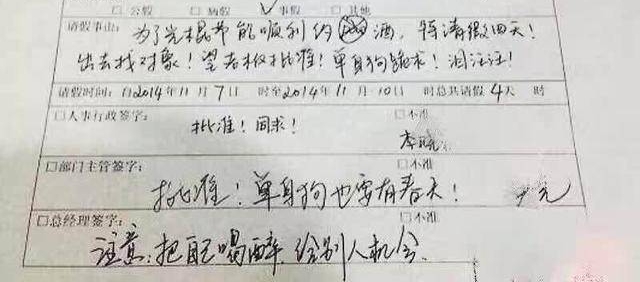 □公假 □病假 ☑事假 □其他
请假事由：为了光棍节能顺利约 酒，特请假四天！
出去找对象！望老板批准！单身狗跪求！泪汪汪！
请假时间：自2014年11月7日 时至2014年11月10日 时总共请假4天 时
□人事行政签字： □不准
批准！同求！ 李晓
□部门主管签字： □不准
批准！单身狗也要有春天！
□总经理签字： □不准
注意：把自己喝醉，给别人机会。